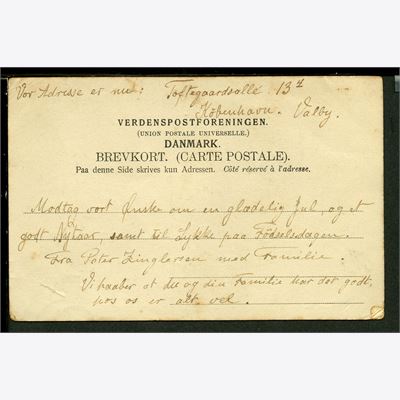 Vor Adresse er nu: Toftegaardsallé 13⁴
København. Valby.
VERDENSPOSTFORENINGEN.
(UNION POSTALE UNIVERSELLE.)
DANMARK.
BREVKORT. (CARTE POSTALE).
Paa denne Side skrives kun Adressen. Côté réservé à l'adresse.
Modtag vort Ønske om en glædelig Jul, og et
godt Nytaar, samt til Lykke paa Fødselsdagen.
Fra Peter Zinglersen med Familie.
Vi haaber at du og din Familie har det godt,
hos os er alt vel.